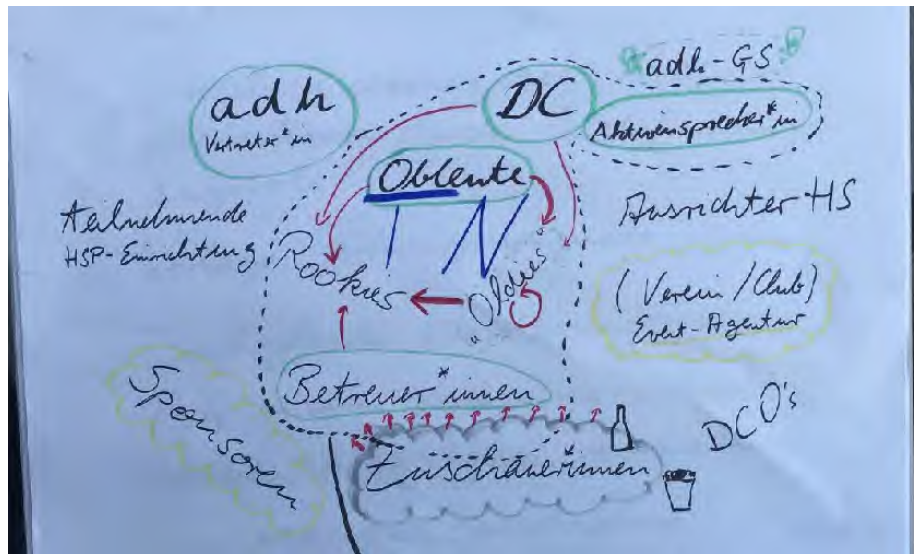 adh
Vertreter*in
DC
adh-GS
Aktivensprecher*in
Obleute
Teilnehmende
HSP-Einrichtung
Rookies
"Oldies"
Ausrichter HS
(Verein/Club)
Event-Agentur
Betreuer*innen
Sponsoren
Zuschauer*innen
DCO's